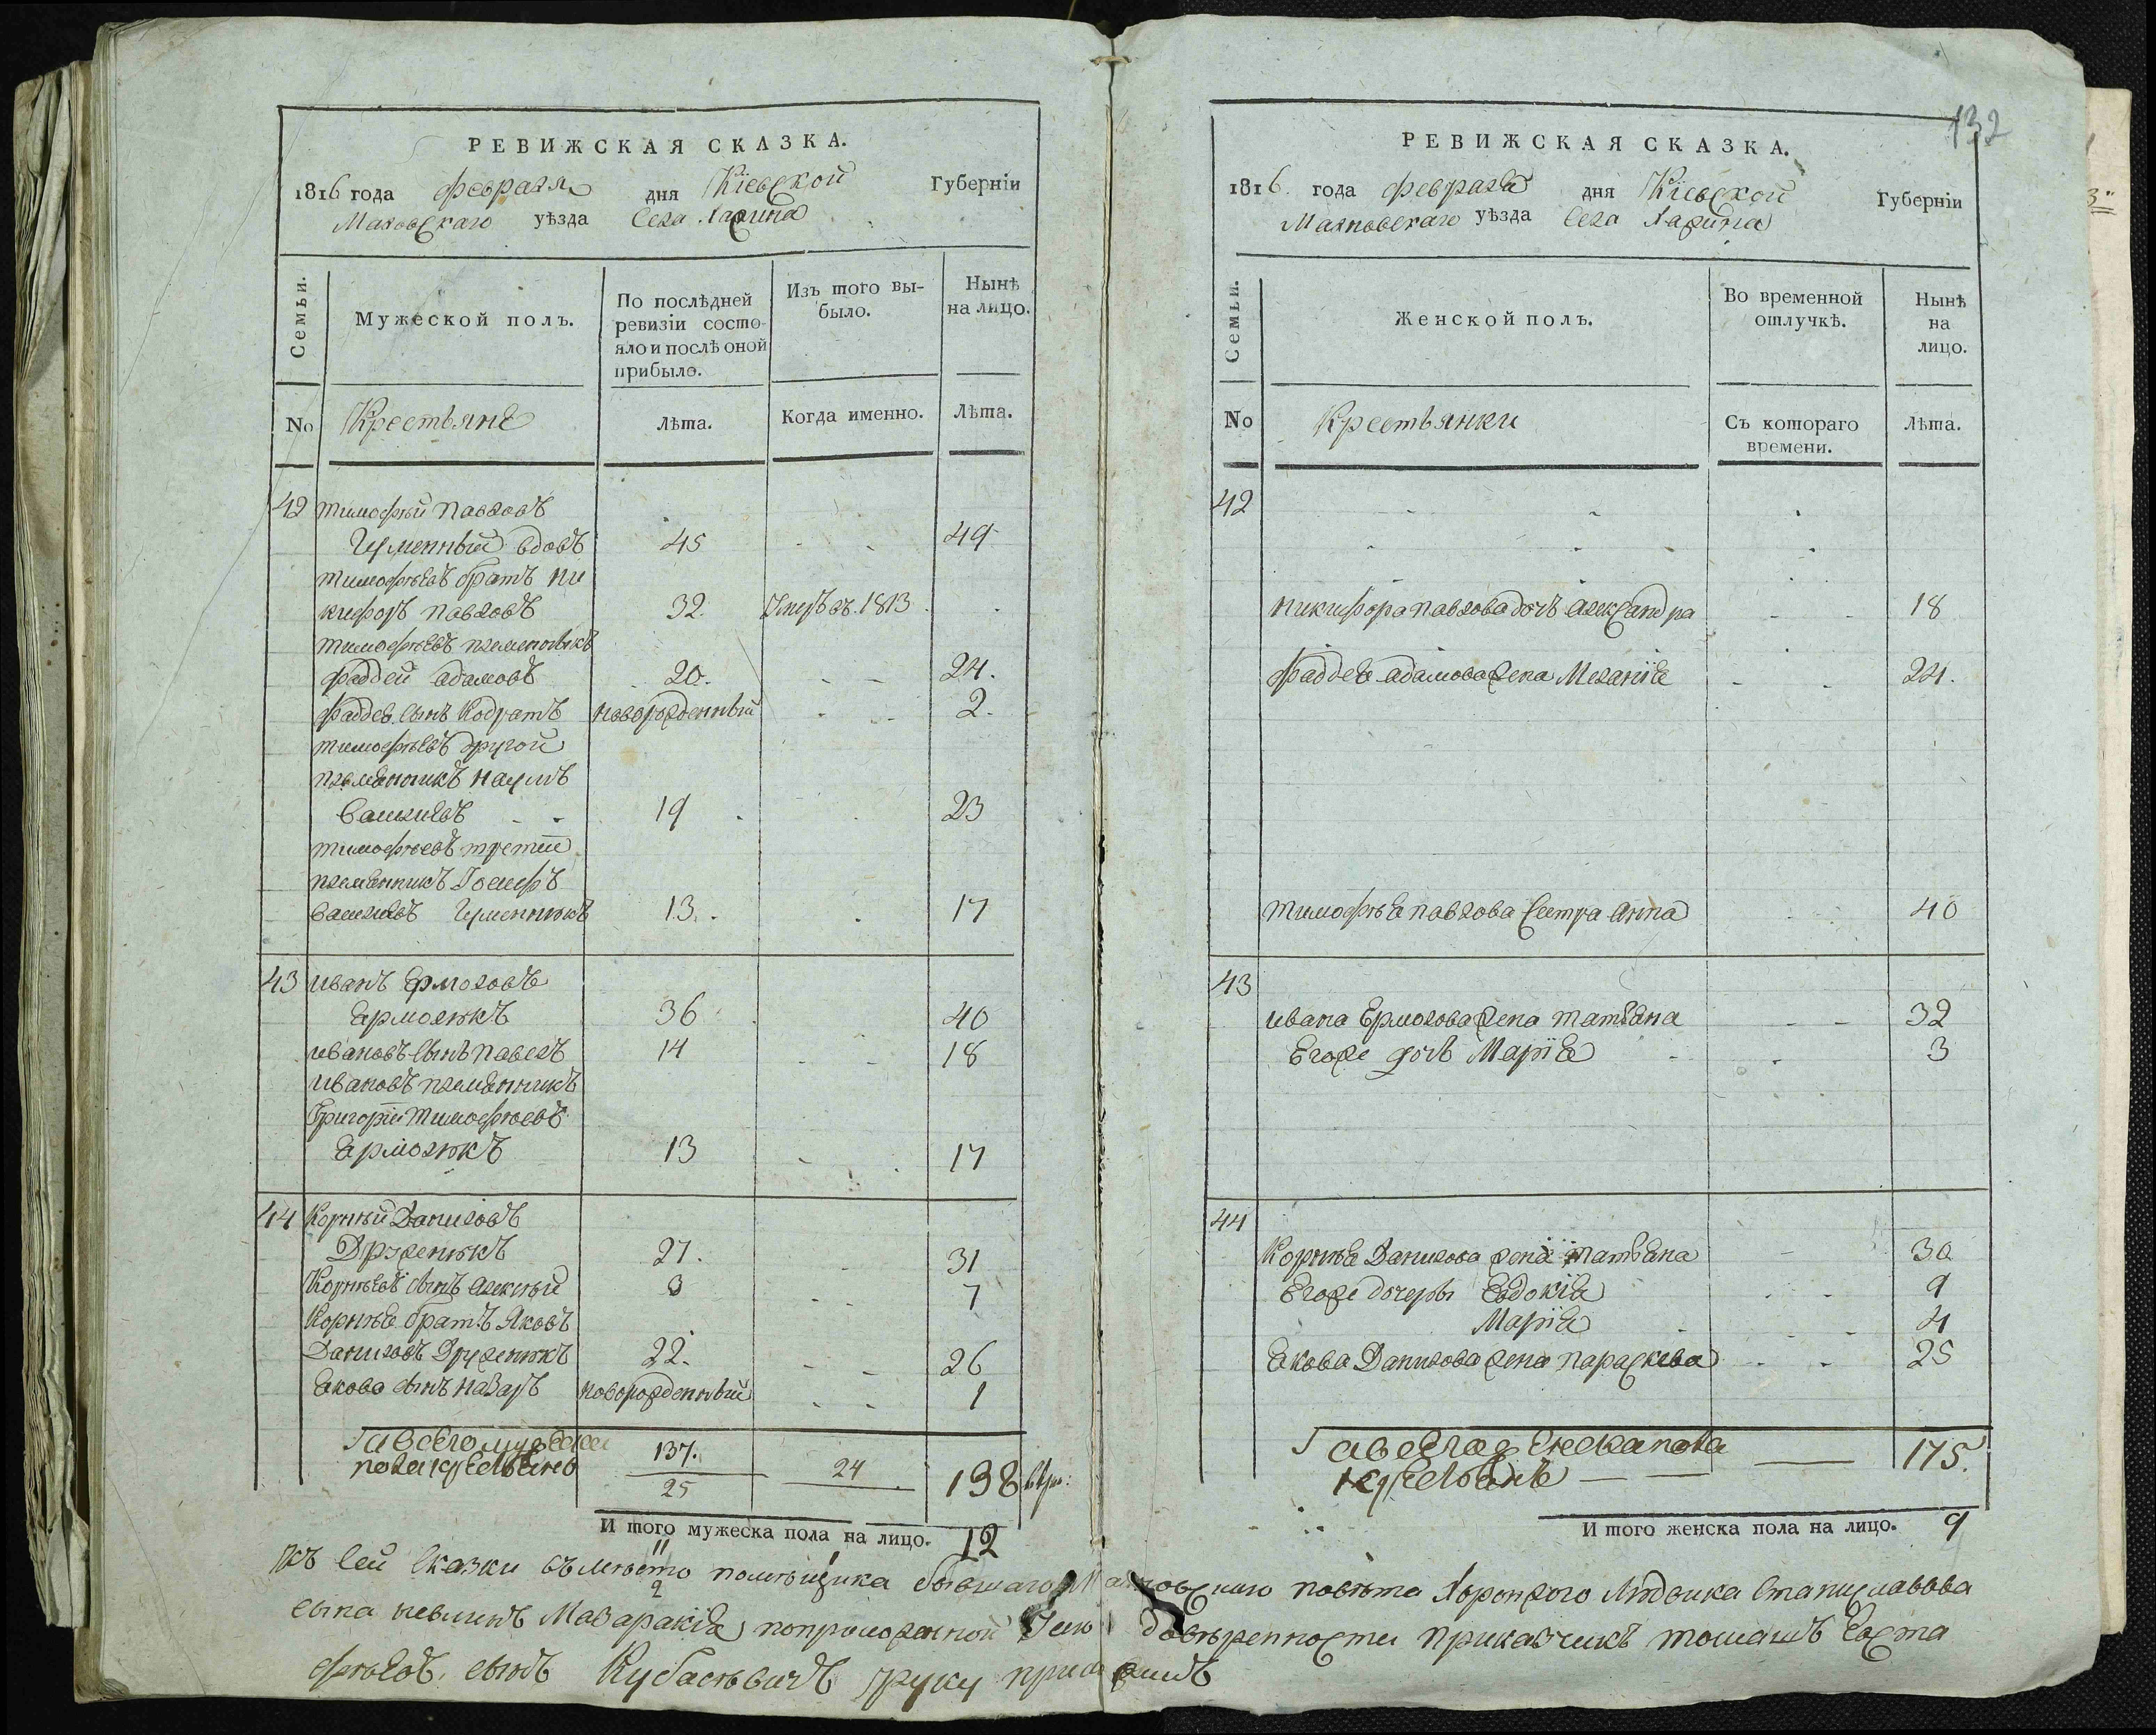 РЕВИЖСКАЯ СКАЗКА.
1816 года февраля дня Кіевской Губерніи
Махновскаго уѣзда Села
Семьи.
Мужеской полъ.
По послѣдней ревизіи состо-
яло и послѣ оной прибыло.
Изъ того вы-
было.
Нынѣ
на лицо.
No Крестьяне лѣта. Когда именно. Лѣта.
42 тимофѣй павловъ
вдовъ 45 49
тимофѣевъ братъ ни
кифоръ павловъ 32. въ 1813
тимофѣевъ племенникъ
фаддей адамовъ 20. 24.
фаддев. сынъ кодратъ новорожденный 2.
тимофѣевъ другой
племянникъ наумъ
19 23
тимофѣевъ третій
племянникъ Іосифъ
13. 17
43 иванъ Ермоловъ
Ермолюкъ 36 40
ивановъ сынъ павелъ 14 18
ивановъ племянникъ
Григорій тимофѣевъ
Ермолюкъ 13 17
44 Корнѣй Даниловъ
27. 31
Корнѣевъ сынъ алексѣй 3 7
Корнѣя братъ Яковъ
Даниловъ 22. 26
Якова сынъ назаръ новорожденный 1
И всего мужеска
пола крестьянъ 137. 24 138
25
И того мужеска пола на лицо. 12
132
РЕВИЖСКАЯ СКАЗКА.
1816. года февраля дня Кіевской Губерніи
Махновскаго уѣзда Села
Семьи.
Женской полъ.
Во временной
отлучкѣ.
Нынѣ
на
лицо.
No Крестьянки Съ котораго
времени. Лѣта.
42
никифора павлова дочь александра 18
фаддея адамова жена Меланія 24.
тимофѣя павлова сестра анна 40
43
ивана Ермолова жена татьяна 32
Егоже дочь Марія 3
44
Корнѣя Данилова жена татьяна 30
Егоже дочеры Евдокія 9
Марія 4
Якова Данилова жена параскева 25
И всего женска пола
крестьянъ 175.
И того женска пола на лицо. 9
къ сей сказки въместо помѣщика бывшаго Махновскаго повѣта Людвика Станиславова
сына Мазаракія по приложенной довѣренности прикащикъ томашъ
сынъ руку приложилъ